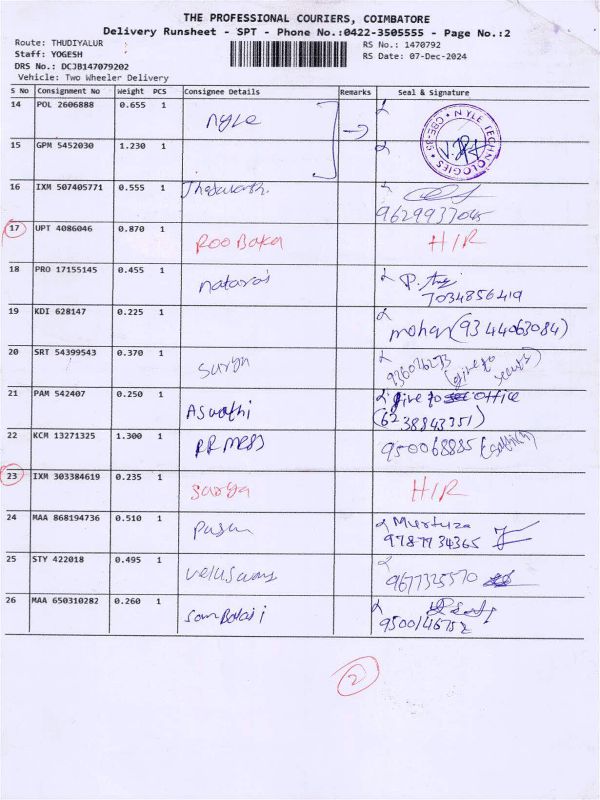 THE PROFESSIONAL COURIERS, COIMBATORE
Delivery Runsheet - SPT - Phone No.:0422-3505555 - Page No.:2
Route: THUDIYALUR
Staff: YOGESH
DRS No.: DCJB147079202
Vehicle: Two Wheeler Delivery
RS No.: 1470792
RS Date: 07-Dec-2024
S No Consignment No Weight PCS Consignee Details Remarks Seal & Signature
14 POL 2606888 0.655 1 Nyle
NYLE TECHNOLOGIES CBE-35
15 GPM 5452030 1.230 1
16 IXM 507405771 0.555 1
17 UPT 4086046 0.870 1 ROOBAKA H/R
18 PRO 17155145 0.455 1 nataraj
7034856419
19 KDI 628147 0.225 1 mohan (9344063084)
20 SRT 54399543 0.370 1 Surya
(give to
21 PAM 542407 0.250 1 Aswathi give to office
(6238843351)
22 KCM 13271325 1.300 1 PR MESS 950068835
23 IXM 303384619 0.235 1 Surya H/R
24 MAA 868194736 0.510 1 Murtuza
9787734365
25 STY 422018 0.495 1 Veluswamy 9677325570
26 MAA 650310282 0.260 1 Sam Balaji
9500146752
2